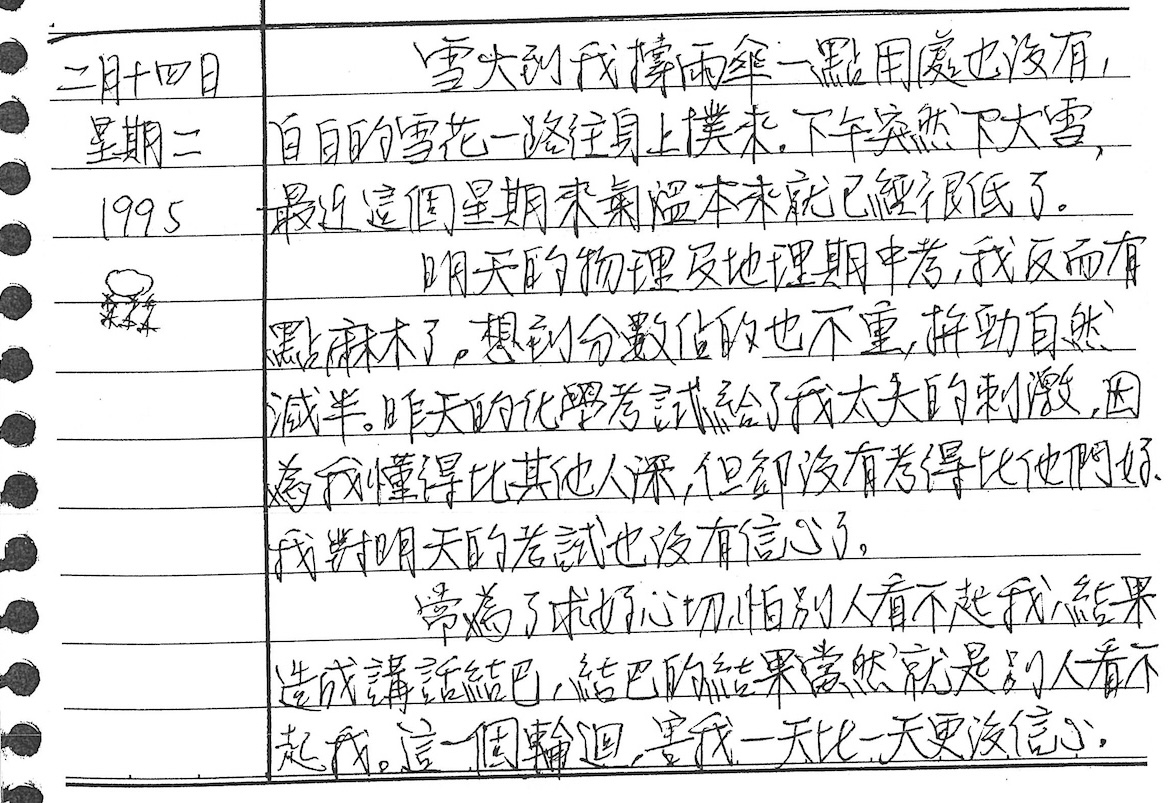 二月十四日
星期二
1995
雪大到我撐雨傘一點用處也沒有,
白白的雪花一路往身上撲來.下午突然下大雪,
最近這個星期來氣溫本來就已經很低了.
明天的物理及地理期中考,我反而有
點麻木了。想到分數佔的也不重,拚勁自然
減半。昨天的化學考試給了我太大的刺激,因
為我懂得比其他人深,但卻沒有考得比他們好.
我對明天的考試也沒有信心了.
常為了求好心切,怕別人看不起我,結果
造成講話結巴,結巴的結果當然就是別人看不
起我。這一個輪迴,害我一天比一天更沒信心.